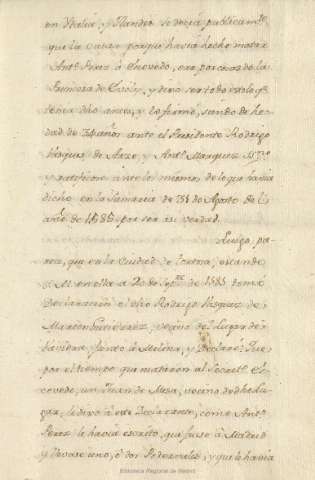 en Italia, y Flandes se decia publicamte.
que la causa porque havia hecho matar
Antto. Perez à Escovedo, era por cosas de la
Princesa de Evoli, y devio ser todo esto lo qe.
tiene dho antes, y lo firmó, siendo de he-
dad de 34 años ante el Presidente Rodrigo
Vazquez de Arze, y Antto. Marquez SSno.
y ratificose ante lo mismo, de lo que havia
dicho en la Sumaria de 31 de Agosto de l
año de 1585 por ser asi verdad.
Luego, pa-
rece, que en la Ciudad de estando
S. M. en ella a 20 de Sepre. de 1585 tomó
Declaracion el dho Rodrigo Vazquez de
Martin Gutierrez, vecino del Lugar de
junto à Molina, y Declaró, Que
por el tiempo que mataron al Secreto. Es-
covedo, un Juan de Mesa, vecino del dho Lu-
gar, le dixo à este Declarante, como Antto.
Perez le havia escrito, que fuese à Madrid
y llevase uno, ó dos Pedreñales, y que le havia
Biblioteca Regional de Madrid